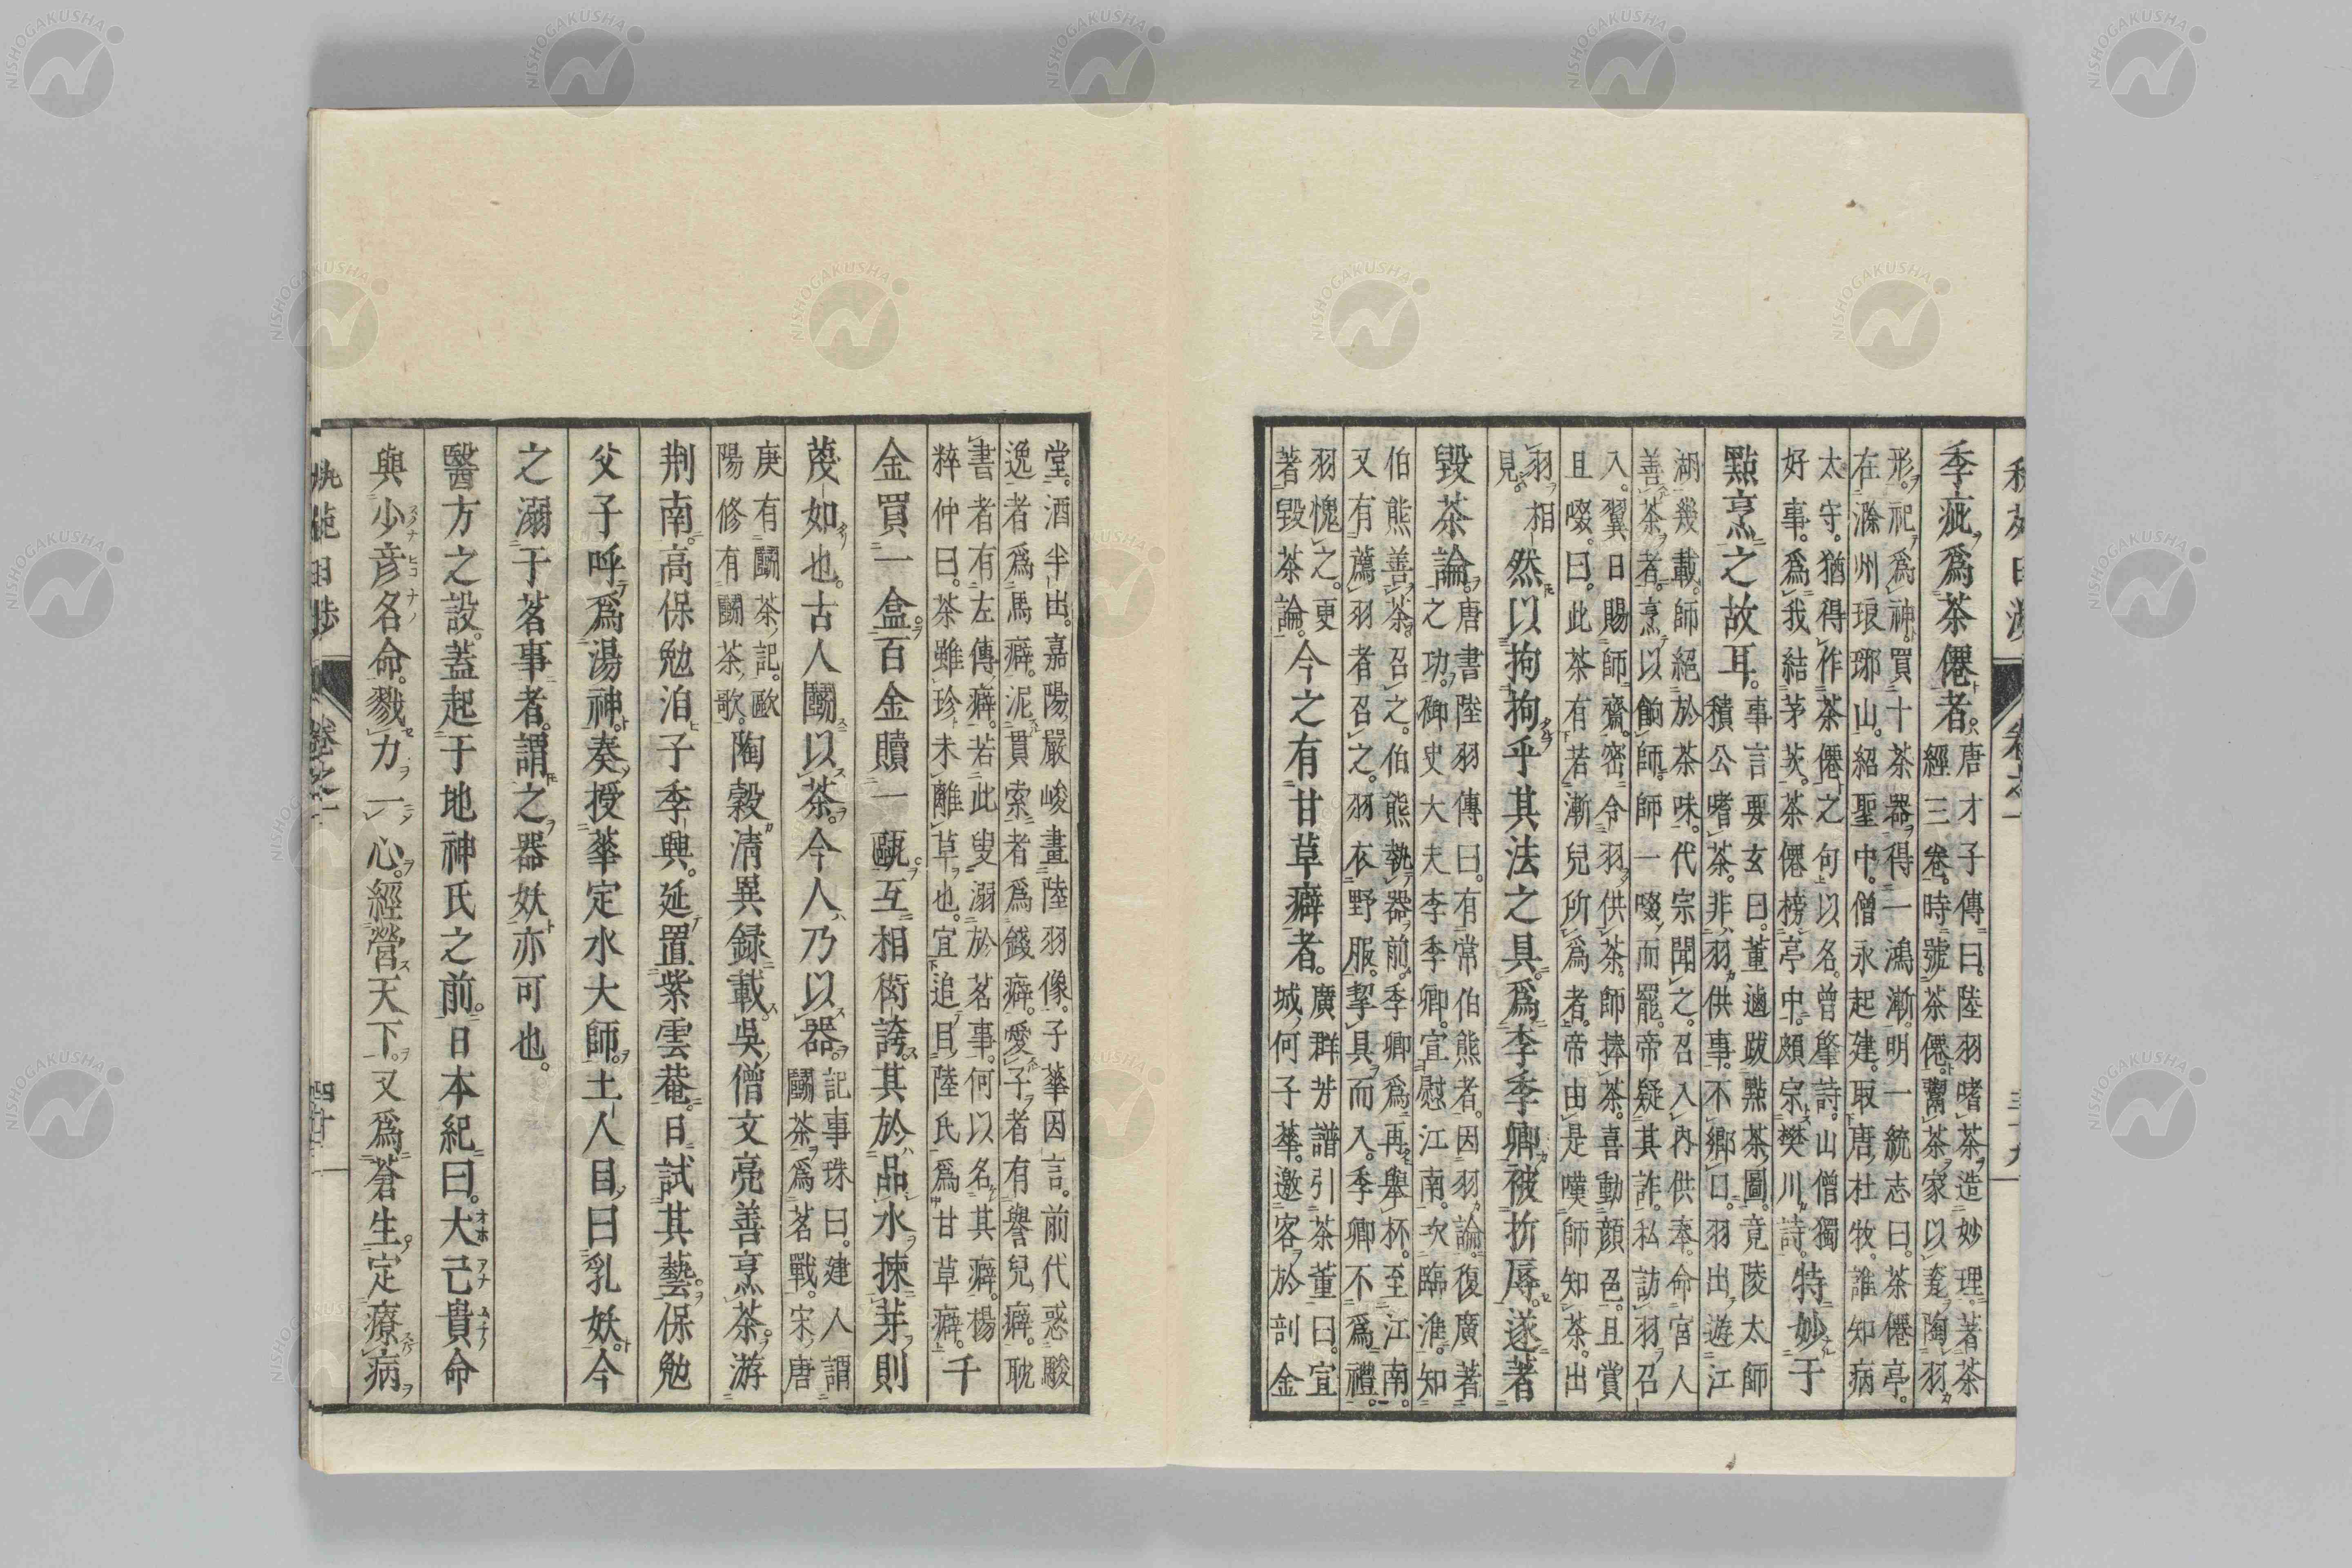 季疵爲茶僊者唐才子傳曰陸羽嗜茶造妙理著茶
經三卷時號茶僊鬻茶家以瓷陶羽
形祀爲神買十茶器得一鴻漸明一統志曰茶僊亭
在滁州琅琊山紹聖中僧永起建取唐杜牧誰知病
太守猶得作茶僊之句以名曾肇詩山僧獨
好事爲我結茅茨茶僊榜亭中頗宗樊川詩特妙于
點烹之故耳事言要玄曰董逌跋點茶圖竟陵太師
積公嗜茶非羽供事不鄉口羽出遊江
湖幾載師絕於茶味代宗聞之召入內供奉命宮人
善茶者烹以餉師師一啜而罷帝疑其詐私訪羽召
入翼日賜師齋密令羽供茶師捧茶喜動顏色且賞
且啜曰此茶有若漸兒所爲者帝由是嘆師知茶出
羽相
見
然以拘拘乎其法之具爲李季卿被折辱遂著
毀茶論唐書陸羽傳曰有常伯熊者因羽論復廣著
之功御史大夫李季卿宣慰江南次臨淮知
伯熊善茶召之伯熊執器前季卿爲再舉杯至江南
又有薦羽者召之羽衣野服挈具而入季卿不爲禮
羽愧之更
著毀茶論
今之有甘草癖者廣群芳譜引茶董曰宜
城何子華邀客於剖金
堂酒半出嘉陽嚴峻畫陸羽像子華因言前代惑駿
逸者爲馬癖泥貫索者爲錢癖愛子者有譽兒癖耽
書者有左傳癖若此叟溺於茗事何以名其癖楊
粹仲曰茶雖珍未離草也宜追目陸氏爲甘草癖千
金買一盒百金贖一甌互相衒誇其於品水揀芽則
蔑如也古人鬭以茶今人乃以器記事珠曰建人謂
鬭茶爲茗戰宋唐
庚有鬭茶記歐
陽修有鬭茶歌
陶穀清異録載吳僧文亮善烹茶游
荆南高保勉泊子季興延置紫雲菴日試其藝保勉
父子呼爲湯神奏授華定水大師土人目曰乳妖今
之溺于茗事者謂之器妖亦可也
醫方之設蓋起于地神氏之前日本紀曰大己貴命
與少彥名命戮力一心經營天下又爲蒼生定療病
卷之一